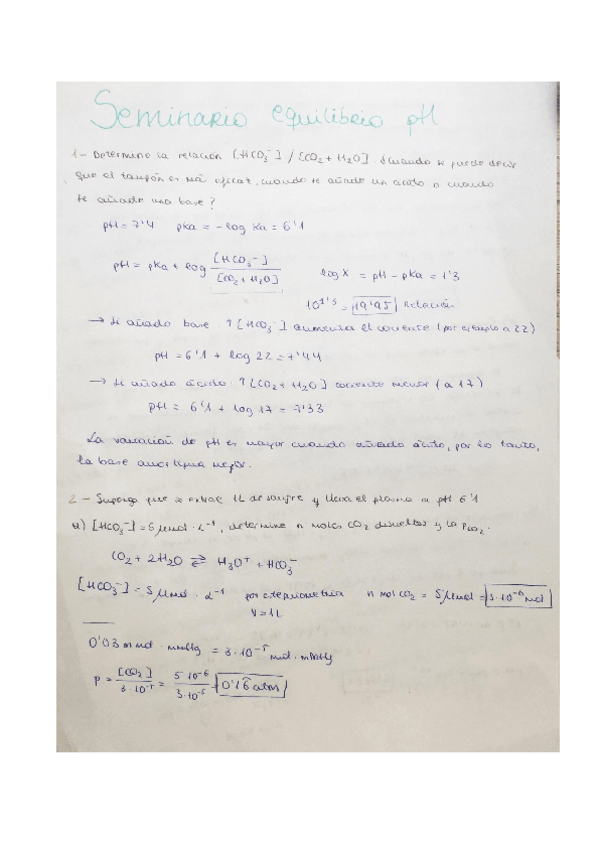 Seminario equilibrio pH
1- Determine la relación [HCO3-] / [CO2 + H2O] ¿Cuándo se puede decir
que el tampón es más eficaz, cuando se añade un ácido o cuando
se añade una base?
pH = 7'4 pKa = -log Ka = 6'1
pH = pKa + log [HCO3-] / [CO2 + H2O] log X = pH - pKa = 1'3
10^1'3 = 19'95 Relación
→ Si añado base ↑ [HCO3-] aumenta el cociente (por ejemplo a 22)
pH = 6'1 + log 22 = 7'44
→ Si añado ácido ↑ [CO2 + H2O] cociente menor (a 17)
pH = 6'1 + log 17 = 7'33
La variación de pH es mayor cuando añado ácido, por lo tanto,
la base amortigua mejor.
2- Suponga que se extrae 1L de sangre y lleva el plasma a pH 6'1
a) [HCO3-] = 5 μmol · L-1, determine n moles CO2 disueltos y la pCO2.
CO2 + 2H2O ⇌ H3O+ + HCO3-
[HCO3-] = 5 μmol · L-1 por estequiometría n mol CO2 = 5 μmol = 5·10^-6 mol
V = 1L
0'03 mmol · mmHg = 3·10^-5 mol · mmHg
p = [CO2] / 3·10^-5 = 5·10^-6 / 3·10^-5 = 0'16 atm